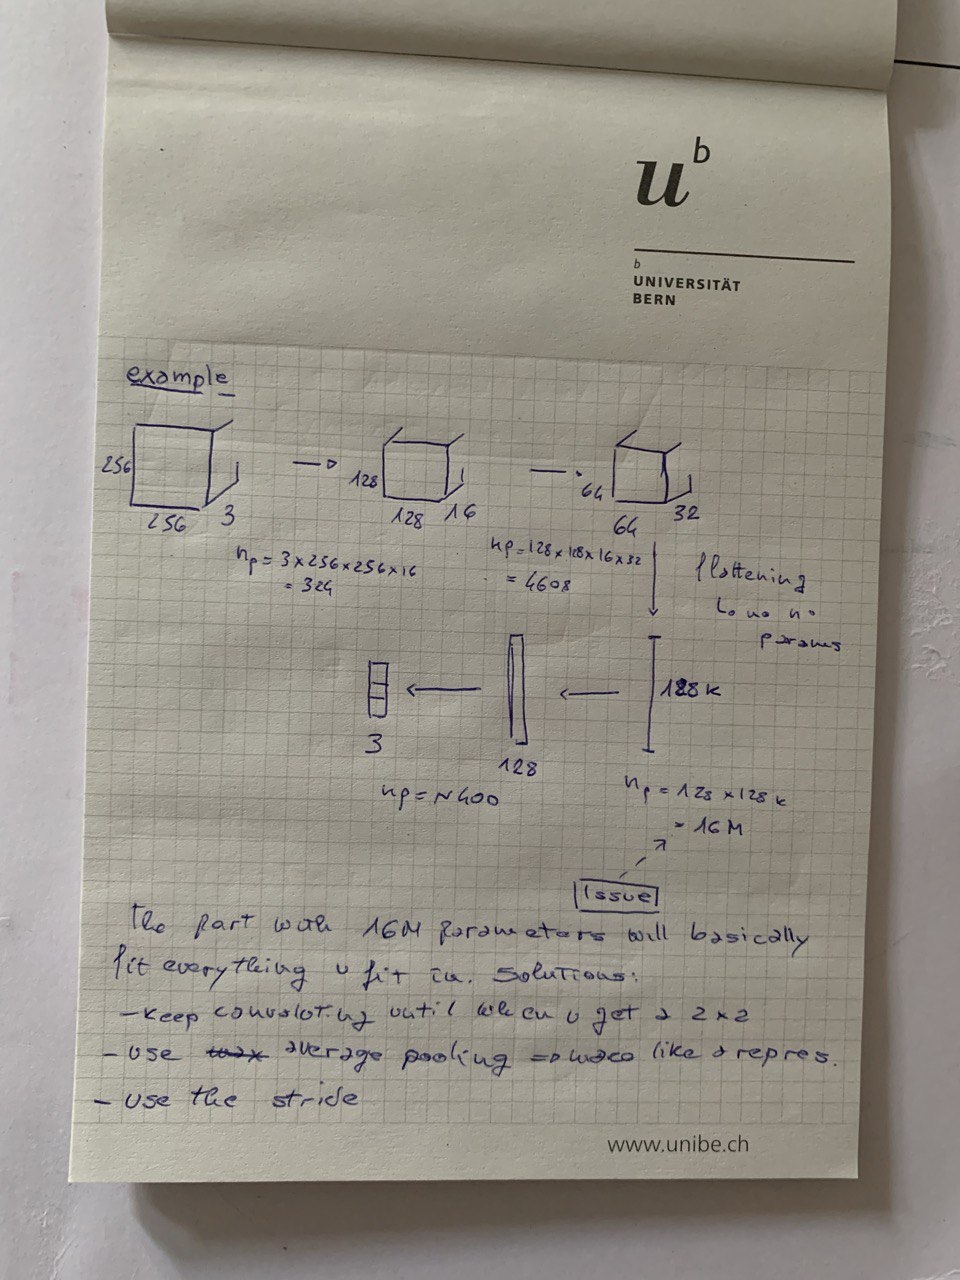 u^b
b
UNIVERSITÄT
BERN
example
256
256
3
128
128
16
64
64
32
np = 3x256x256x16
= 324
np = 128x128x16x32
= 4608
flattening
↳ no n°
params
128k
3
128
np = ~400
np = 128 x 128k
= 16M
Issue
The part with 16M parameters will basically
fit everything u fit in. Solutions:
- keep convoluting until when u get a 2x2
- use max average pooling => like a repres.
- use the stride
www.unibe.ch